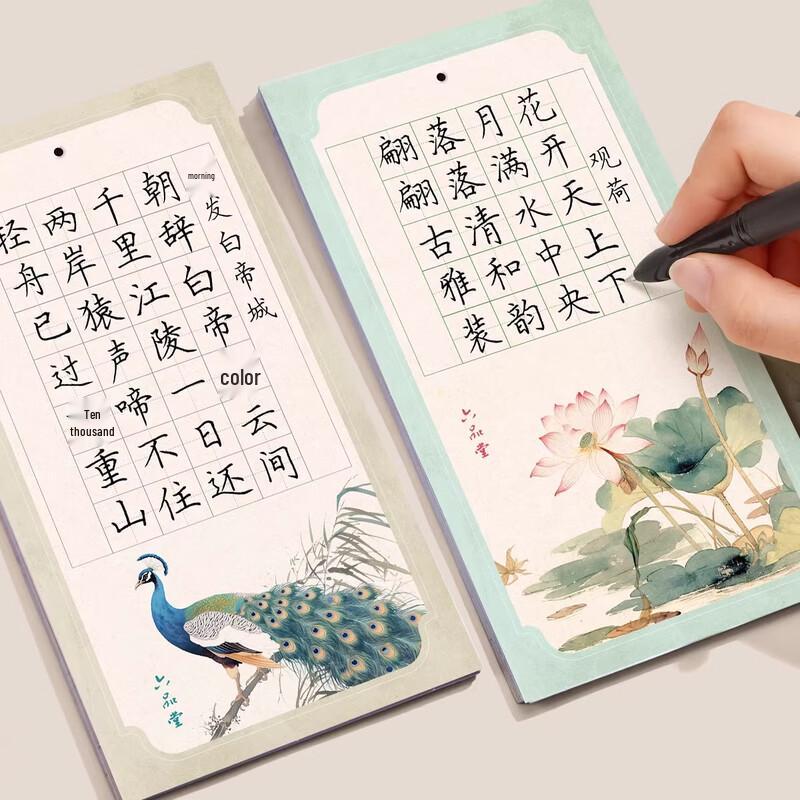 morning
发白帝城
朝辞白帝
color
云间
千里江陵一日还
两岸猿声啼不住
轻舟已过
Ten
thousand
重山
六品堂
观荷
花开天上下
月满水中央
落落清和韵
翩翩古雅装
六品堂